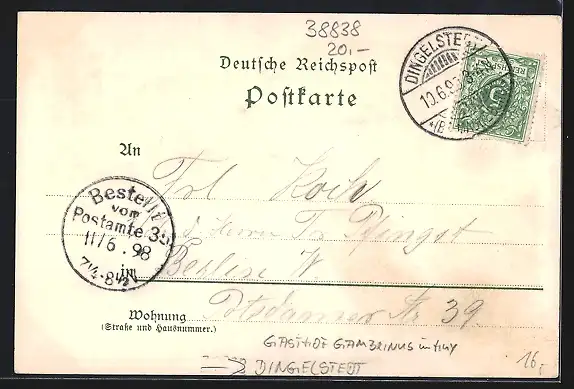 38838
20,-
Deutsche Reichspost
Postkarte
DINGELSTEDT
10.6.98
An
Frl Koch
Bestellt
vom
Postamte 35
11/6.98
7¼-8½V
Herrn Fr Pfingst
im
Berlin W.
Potsdamer Str 39
Wohnung
(Straße und Hausnummer.)
GASTHOF GAMBRINUS in Huy
→ DINGELSTEDT
16,